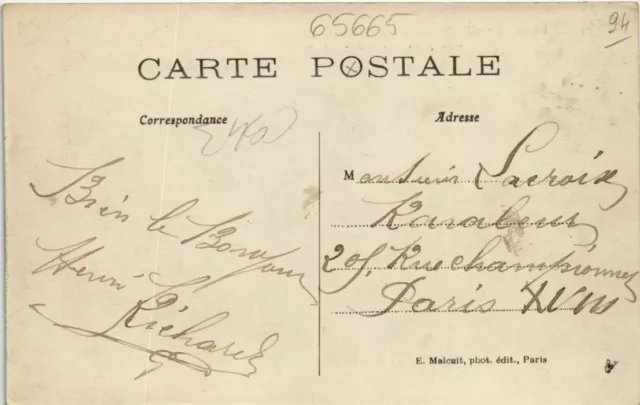 65665
94
CARTE POSTALE
Correspondance
Adresse
Bien le Bonjour
Henri
Richard
Monsieur Lacroix
205, Rue championnet
Paris XVIII
E. Malcuit, phot. édit., Paris